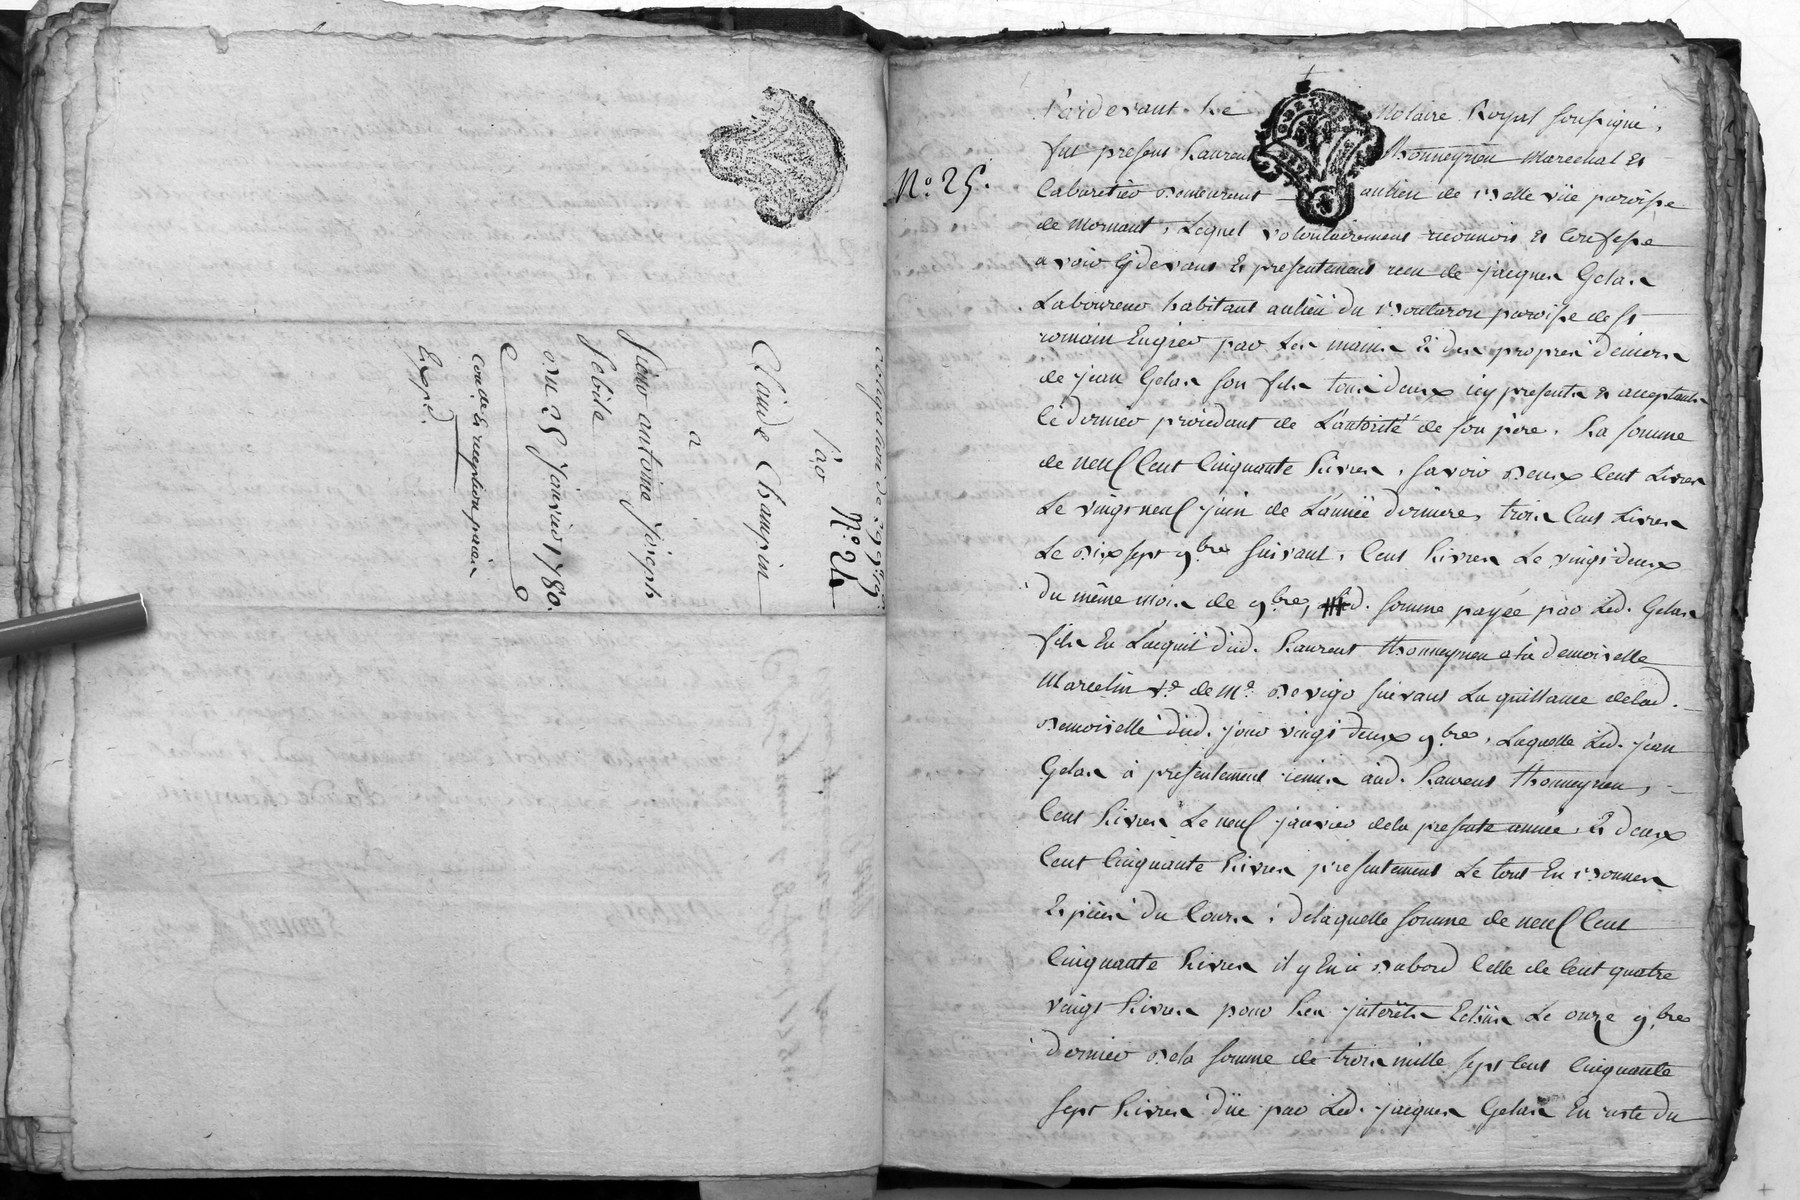 obligation de 299₶ 19s
N.° 24
par
Claude Champin
a
sieur antoine Joseph
Sebila
du 25 Janvier 1780.
Con.lé Er reception parcia
Exp.d
N.° 25.
Pardevant Le Notaire Royal soussigné,
fut present Laurent Thonneyrieu Marechal et
Cabaretier demeurant au lieu de Belle vüe paroisse
de Mornant, Lequel volontairement reconnois et Confesse
avoir Cy devant Et presentement recu de jacques Gelas
Laboureur habitant au lieu du Moutaron paroisse de St
romain En gier par Les mains Et des propres deniers
de jean Gelas son fils tous deux icy presents et acceptants
Ce dernier procedant de L'autorité de son père, La somme
de neuf Cent Cinquante Livres, savoir deux Cent Livres
Le vingt neuf juin de L'année derniere, trois Cent Livres
Le dix sept 9.bre suivant, Cent Livres Le vingt deux
du même mois de 9.bre, somme payée par Led. Gelas
fils En L'acquit dud. Laurent thonneyrieu a la demoiselle
Marcelin v.e de M.e Devigo suivant La quittance delad.
Demoiselle dud. jour vingt deux 9.bre, Laquelle Led. jean
Gelas à presentement remis aud. Laurent thonneyrieu,
Cent Livres Le neuf janvier dela presente année, Et deux
Cent Cinquante Livres presentement Le tout En Bonnes
Espèces du Cours, delaquelle somme de neuf Cent
Cinquante Livres il y En à Dabord Celle de Cent quatre
vingt Livres pour Les jnterêts Echüs Le onze 9.bre
dernier Dela somme de trois mille sept Cent Cinquante
sept Livres düe par Led. jacques Gelas En reste du